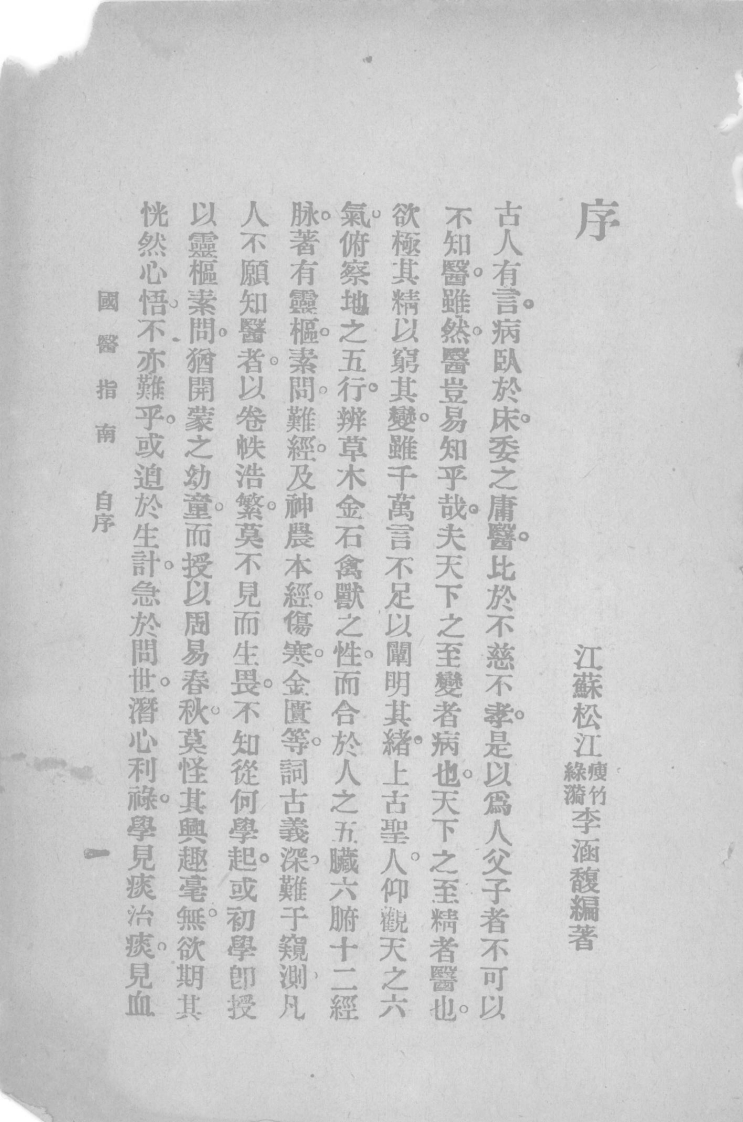 序
江蘇松江瘦竹綠漪李涵馥編著
古人有言。病臥於床。委之庸醫。比於不慈不孝。是以爲人父子者不可以
不知醫。雖然。醫豈易知乎哉。夫天下之至變者病也。天下之至精者醫也。
欲極其精以窮其變。雖千萬言不足以闡明其緒。上古聖人。仰觀天之六
氣。俯察地之五行。辨草木金石禽獸之性。而合於人之五臟六腑十二經
脉。著有靈樞。素問。難經。及神農本經。傷寒。金匱等。詞古義深。難于窺測。凡
人不願知醫者。以卷帙浩繁。莫不見而生畏。不知從何學起。或初學卽授
以靈樞素問。猶開蒙之幼童。而授以周易春秋。莫怪其興趣毫無。欲期其
恍然心悟。不亦難乎。或迫於生計。急於問世。潛心利祿。學見痰治痰。見血
國醫指南 自序